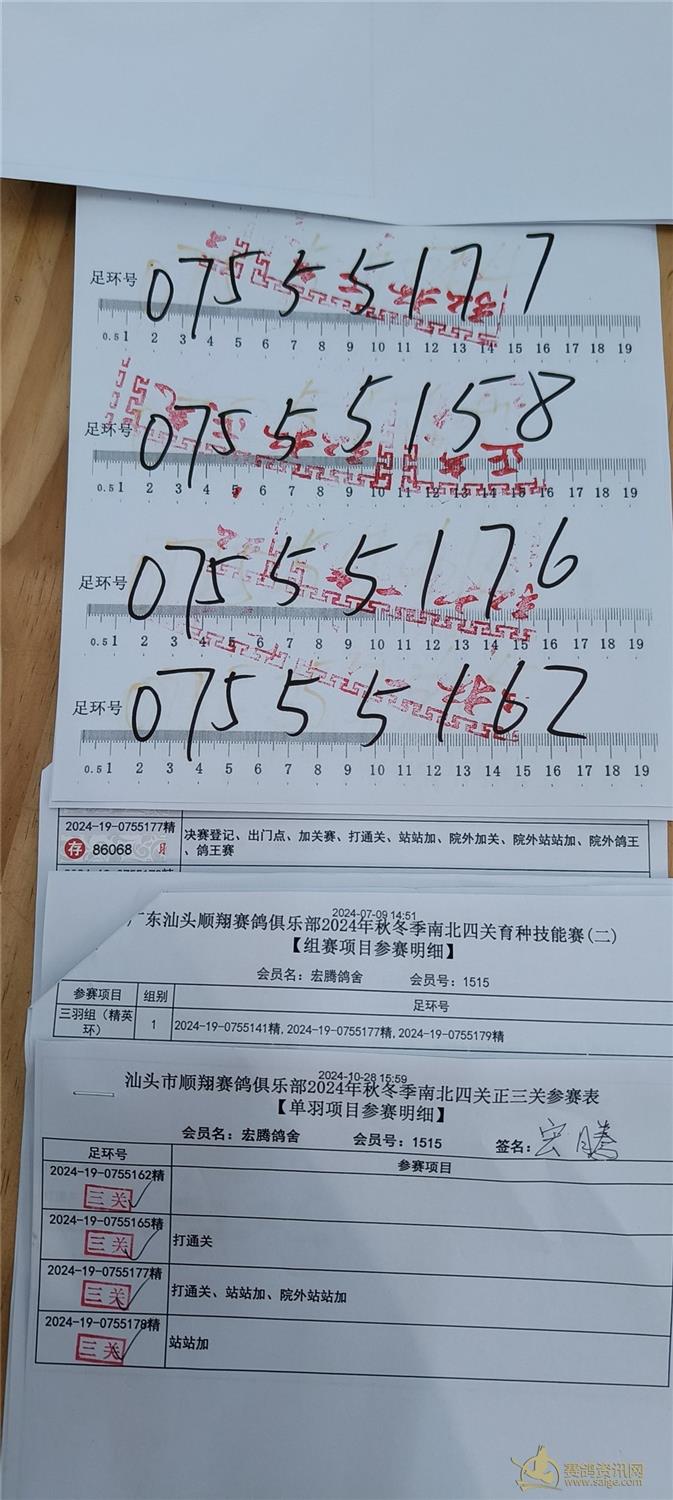 足环号 07555177
0.5 1 2 3 4 5 6 7 8 9 10 11 12 13 14 15 16 17 18 19
足环号 07555158
0.5 1 2 3 4 5 6 7 8 9 10 11 12 13 14 15 16 17 18 19
足环号 07555176
0.5 1 2 3 4 5 6 7 8 9 10 11 12 13 14 15 16 17 18 19
足环号 07555162
0.5 1 2 3 4 5 6 7 8 9 10 11 12 13 14 15 16 17 18 19
2024-19-0755177精
存 86068
决赛登记、出门点、加关赛、打通关、站站加、院外加关、院外站站加、院外鸽王
、鸽王赛
2024-07-09 14:51
东汕头顺翔赛鸽俱乐部2024年秋冬季南北四关育种技能赛(二)
【组赛项目参赛明细】
会员名：宏腾鸽舍 会员号：1515
参赛项目 组别 足环号
三羽组（精英
环） 1 2024-19-0755141精,2024-19-0755177精,2024-19-0755179精
2024-10-28 15:59
汕头市顺翔赛鸽俱乐部2024年秋冬季南北四关正三关参赛表
【单羽项目参赛明细】
会员名：宏腾鸽舍 会员号：1515 签名：宏腾
足环号 参赛项目
2024-19-0755162精
三关
2024-19-0755165精
三关 打通关
2024-19-0755177精
三关 打通关、站站加、院外站站加
2024-19-0755178精
三关 站站加
赛鸽资讯网
www.saige.com